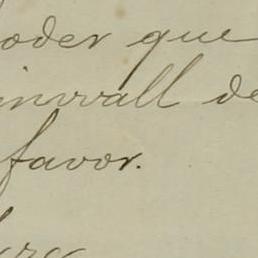 oder que
inwall de
favor.